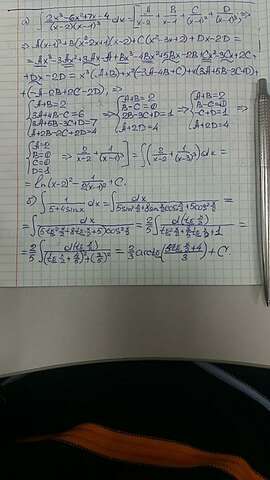 a) ∫ (2x³-6x²+7x-4)/((x-2)(x-1)³) dx = [A/(x-2) + B/(x-1) + C/(x-1)² + D/(x-1)³] ⇒
⇒ A(x-1)³ + B(x²-2x+1)(x-2) + C(x²-3x+2) + Dx-2D =
= Ax³-3Ax²+3Ax-A+Bx³-4Bx²+5Bx-2B+Cx²-3Cx+2C+
+Dx-2D = x³(A+B)+x²(-3A-4B+C)+x(3A+5B-3C+D)+
+(-A-2B+2C-2D) ⇒
{A+B=2
3A+4B-C=6
3A+5B-3C+D=7
A+2B-2C+2D=4
⇒ {A+B=2
B-C=0
2B-3C+D=1
A+2D=4
⇒ {A+B=2
B-C=0
-C+D=1
A+2D=4
{A=2
B=0
C=0
D=1
⇒ 2/(x-2) + 1/(x-1)³] = ∫(2/(x-2) + 1/(x-1)³)dx =
= ln(x-2)² - 1/(2(x-1)²) + C.
б) ∫ 1/(5+4sinx) dx = ∫ dx/(5sin²x/2+8sin x/2 cos x/2+5cos²x/2) =
= ∫ dx/((5tg²x/2+8tg x/2+5)cos²x/2) = 2/5 ∫ d(tg x/2)/(tg²x/2+8/5 tg x/2+1) =
= 2/5 ∫ d(tg x/2)/((tg x/2+4/5)²+(3/5)²) = 2/3 arctg((5tg x/2+4)/3) + C.